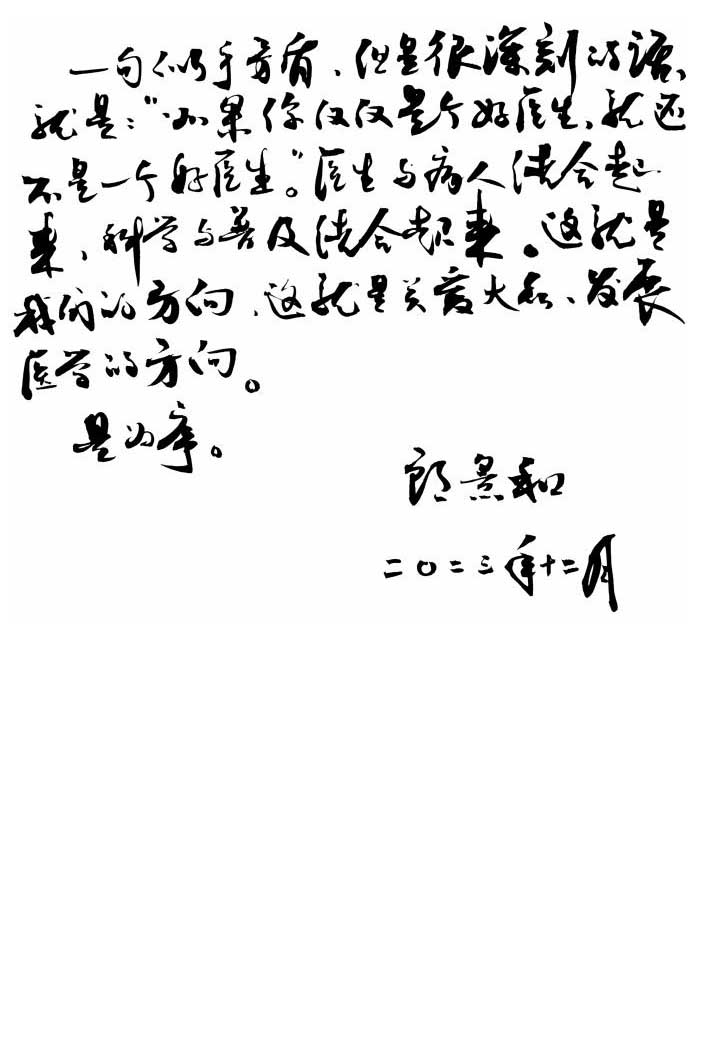 一句似乎矛盾、但是很深刻的话、
就是：“如果你仅仅是个好医生、就还
不是一个好医生。”医生与病人结合起
来、科学与普及结合起来。这就是
我们的方向、这就是关爱大众、发展
医学的方向。
是为序。
郎景和
二〇二三年十二月